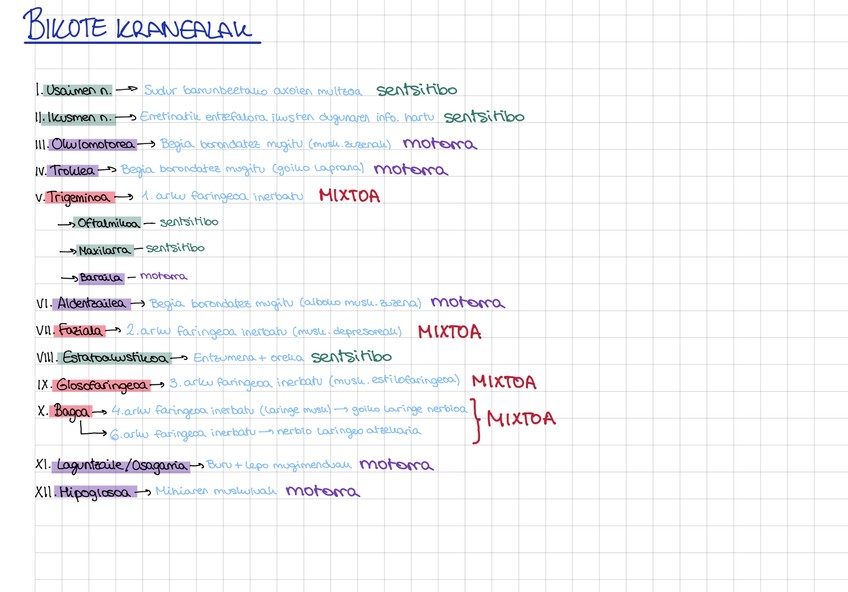 BIKOTE KRANEALAK
I. Usaimen n. → Sudur barrunbeetako axoien multzoa sentsitibo
II. Ikusmen n. → Erretinatik entzefalora ikusten dugunaren info. hartu sentsitibo
III. Okulomotorea → Begia borondatez mugitu (musk. zuzenak) motorra
IV. Troklea → Begia borondatez mugitu (goiko laprana) motorra
V. Trigeminoa → 1. arku faringeoa inerbatu MIXTOA
→ Oftalmikoa – sentsitibo
→ Maxilarra – sentsitibo
→ Baraila – motorra
VI. Aldentzailea → Begia borondatez mugitu (alboko musk. zuzena) motorra
VII. Faziala → 2. arku faringeoa inerbatu (musk. depresoreak) MIXTOA
VIII. Estatoakustikoa → Entzumena + oreka sentsitibo
IX. Glosofaringeoa → 3. arku faringeoa inerbatu (musk. estilofaringeoa) MIXTOA
X. Bagoa → 4. arku faringeoa inerbatu (laringe musk) → goiko laringe nerbioa } MIXTOA
→ 6. arku faringeoa inerbatu → nerbio laringeo atzekaria
XI. Laguntzaile/Osagarria → Buru + lepo mugimenduak motorra
XII. Hipoglosoa → Mihiaren muskuluak motorra